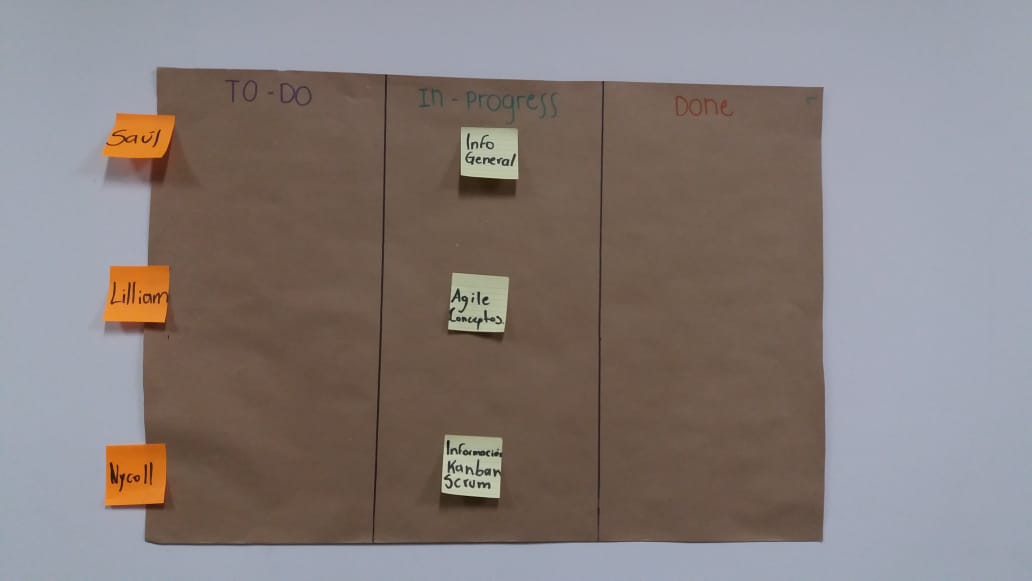 TO-DO
In-progress
Done
Saúl
Info
General
Lilliam
Agile
Conceptos
Nycoll
Información
Kanban
Scrum